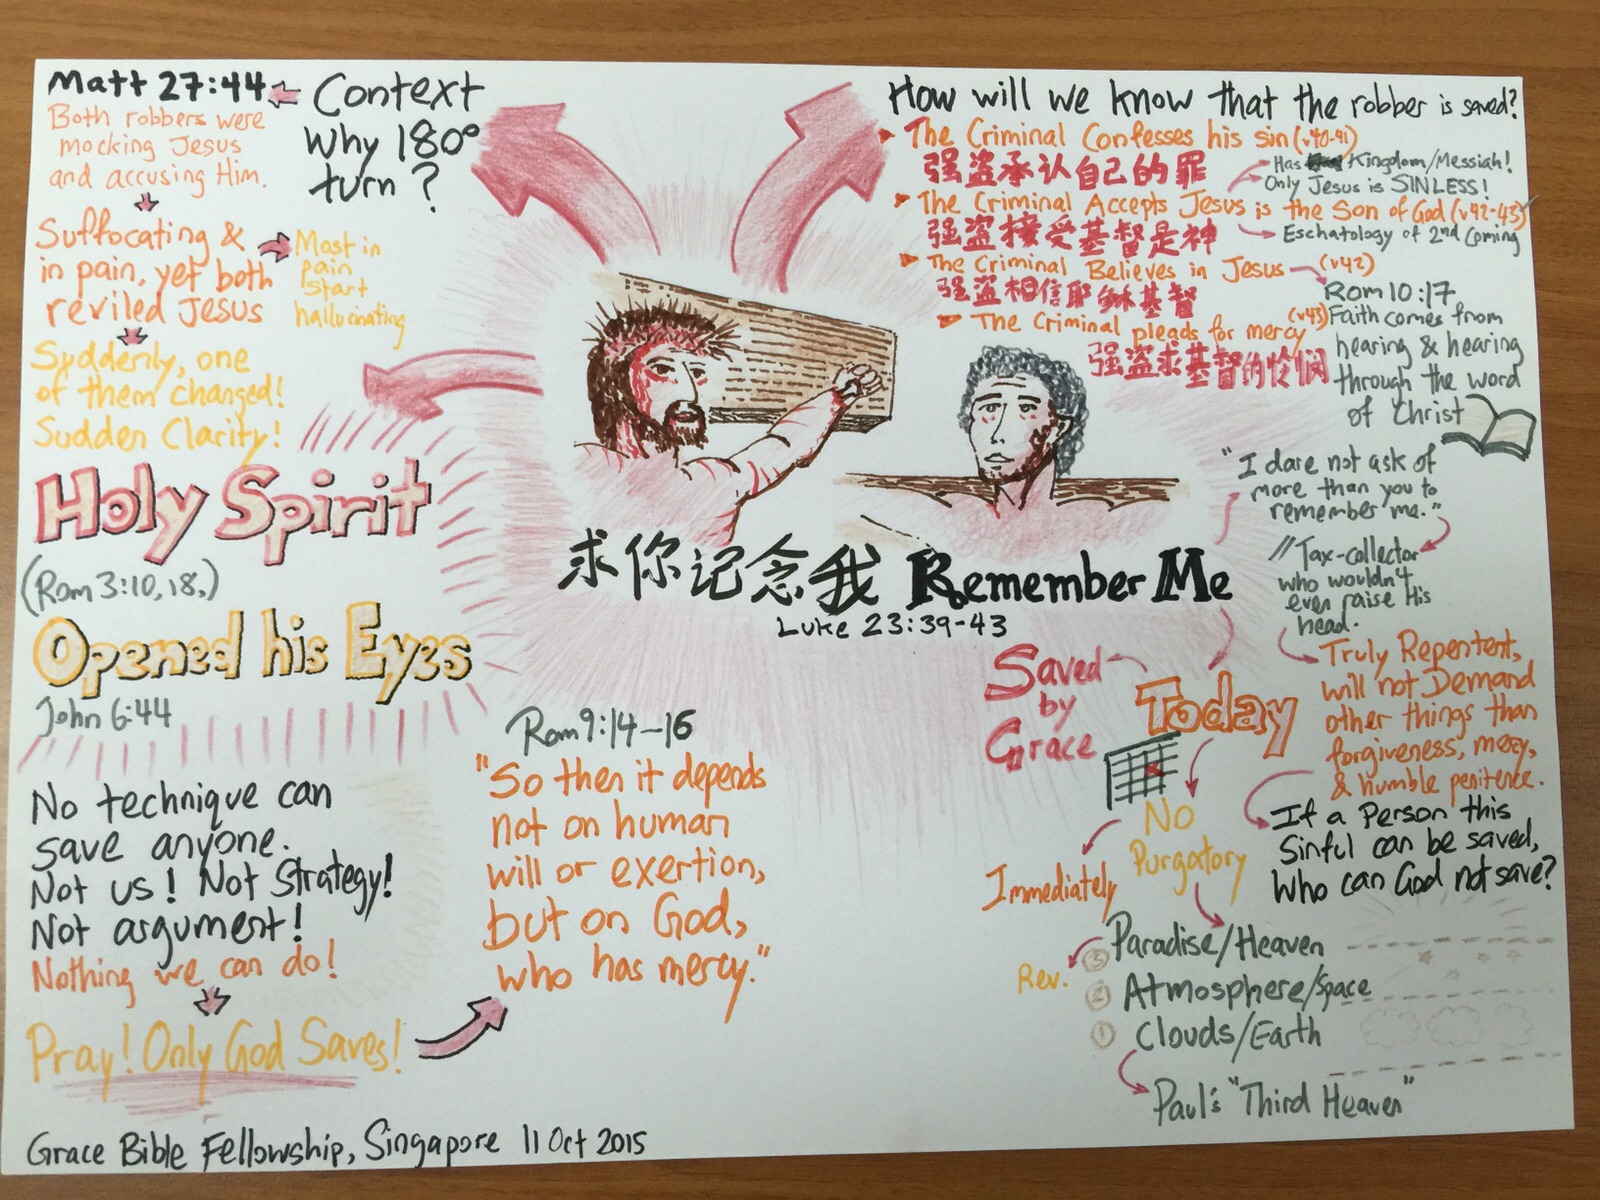 Matt 27:44
Both robbers were
mocking Jesus
and accusing Him.
Context
Why 180°
turn?
Suffocating &
in pain, yet both
reviled Jesus
Most in
pain
start
hallucinating
Suddenly, one
of them changed!
Sudden Clarity!
Holy Spirit
(Rom 3:10,18,)
Opened his Eyes
John 6:44
No technique can
save anyone.
Not us! Not Strategy!
Not argument!
Nothing we can do!
Pray! Only God Saves!
Rom 9:14-16
"So then it depends
not on human
will or exertion,
but on God,
who has mercy."
求你记念我 Remember Me
Luke 23:39-43
How will we know that the robber is saved?
The Criminal Confesses his sin (v40-41)
强盗承认自己的罪
Has Kingdom/Messiah!
Only Jesus is SINLESS!
The Criminal Accepts Jesus is the Son of God (v42-43)
强盗接受基督是神
Eschatology of 2nd Coming
The Criminal Believes in Jesus (v42)
强盗相信耶稣基督
The Criminal pleads for mercy (v43)
强盗求基督的怜悯
Rom 10:17
Faith comes from
hearing & hearing
through the word
of Christ
"I dare not ask of
more than you to
remember me."
// Tax-collector
who wouldn't
even raise His
head.
Truly Repentent,
will not Demand
other things than
forgiveness, mercy,
& humble penitence.
If a Person this
Sinful can be saved,
Who can God not save?
Saved
by
Grace
Today
No
Purgatory
Immediately
③ Paradise/Heaven
Rev.
② Atmosphere/Space
① Clouds/Earth
Paul's "Third Heaven"
Grace Bible Fellowship, Singapore 11 Oct 2015